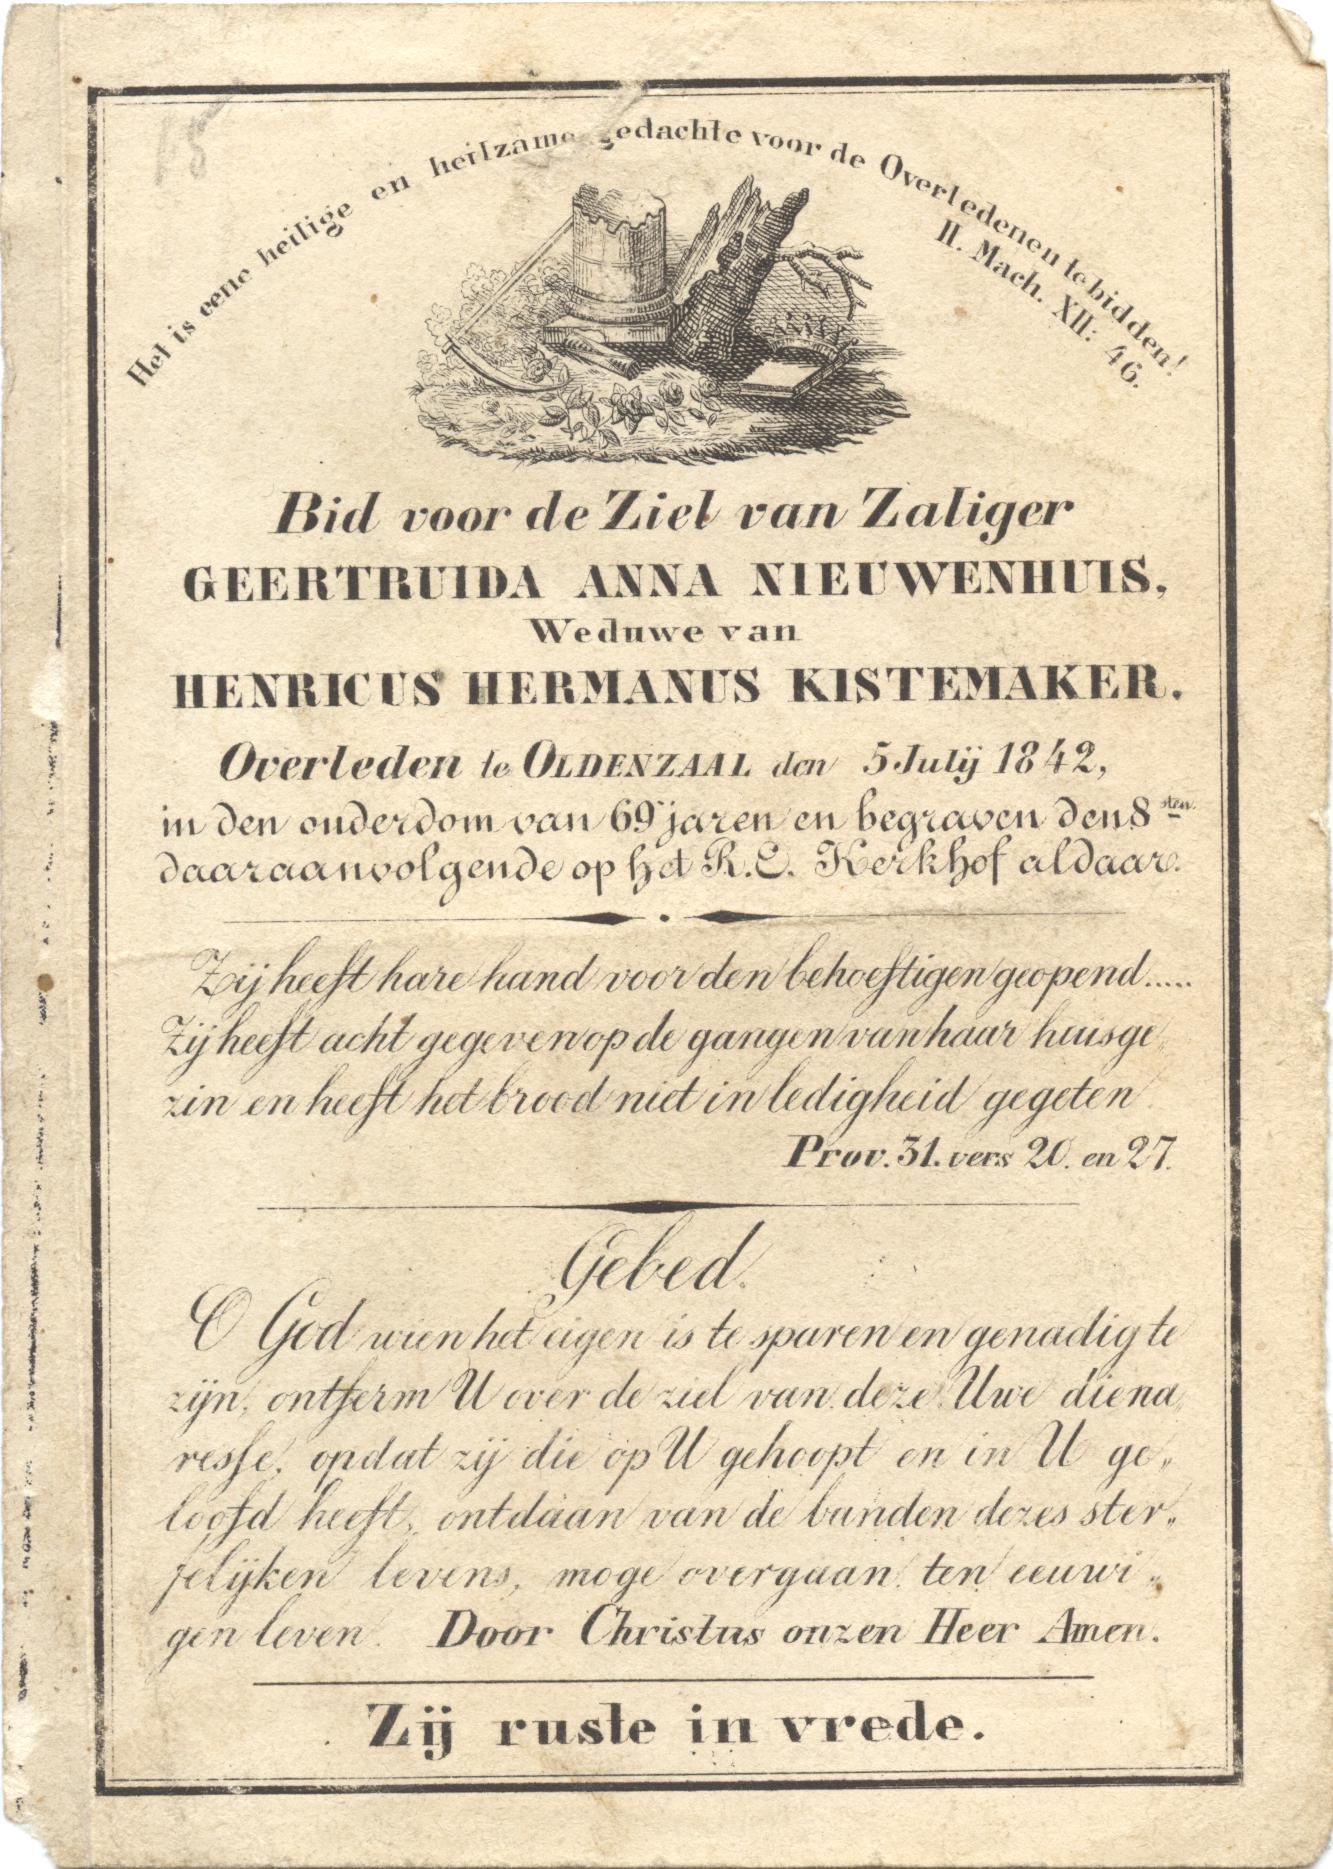 Het is eene heilige en heilzame gedachte voor de Overledenen te bidden!
II. Mach. XII: 46.
Bid voor de Ziel van Zaliger
GEERTRUIDA ANNA NIEUWENHUIS,
Weduwe van
HENRICUS HERMANUS KISTEMAKER.
Overleden te OLDENZAAL den 5 Julij 1842,
in den ouderdom van 69 jaren en begraven den 8sten
daaraanvolgende op het R.C. Kerkhof aldaar.
Zij heeft hare hand voor den behoeftigen geopend.....
Zij heeft acht gegeven op de gangen van haar huisge„
zin en heeft het brood niet in ledigheid gegeten.
Prov. 31. vers 20. en 27.
Gebed.
O God wien het eigen is te sparen en genadig te
zijn, ontferm U over de ziel van deze Uwe diena„
resse, opdat zij die op U gehoopt en in U ge„
loofd heeft, ontdaan van de banden dezes ster„
felijken levens, moge overgaan ten eeuwi„
gen leven. Door Christus onzen Heer Amen.
Zij ruste in vrede.